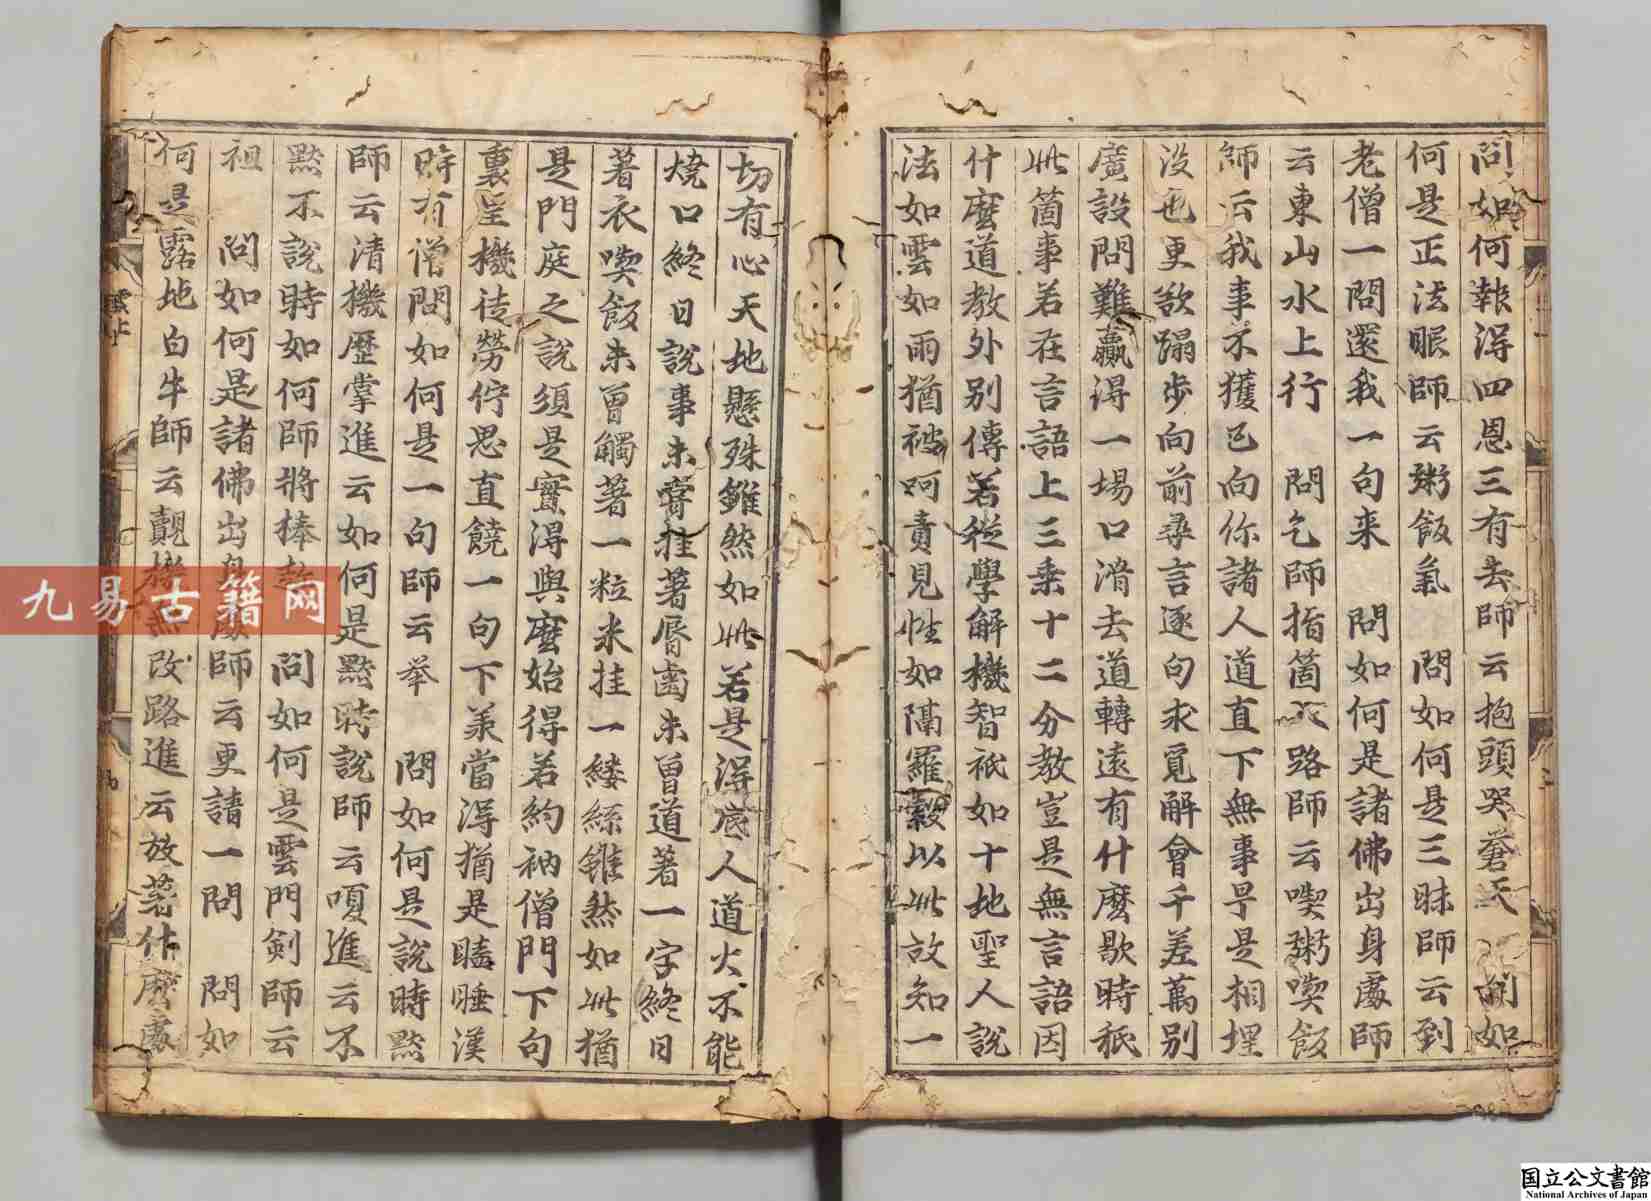 問如何報得四恩三有去師云抱頭哭蒼天　問如
何是正法眼師云粥飯氣　問如何是三昧師云到
老僧一問還我一句来　問如何是諸佛出身處師
云東山水上行　問乞師指箇入路師云喫粥喫飯
師云我事不獲已向你諸人道直下無事早是相埋
没也更欲蹋步向前尋言逐句求覓解會千差萬別
廣設問難贏得一場口滑去道轉遠有什麼歇時秖
此箇事若在言語上三乗十二分教豈是無言語因
什麼道教外別傳若從學解機智祇如十地聖人說
法如雲如雨猶被呵責見性如隔羅縠以此故知一
切有心天地懸殊雖然如此若是得底人道火不能
燒口終日說事未甞挂著唇齒未曾道著一字終日
著衣喫飯未曾觸著一粒米挂一縷絲雖然如此猶
是門庭之說須是實得與麼始得若約衲僧門下句
裏呈機徒勞佇思直饒一句下羕當得猶是瞌睡漢
時有僧問如何是一句師云举　問如何是說時默
師云清機歷掌進云如何是默時說師云嗄進云不
默不說時如何師將棒趂　問如何是雲門劍師云
祖　問如何是諸佛出身處師云更請一問　問如
何是露地白牛師云覿機無改路進云放著什麼處
雲上
九易古籍网
国立公文書館
National Archives of Japan